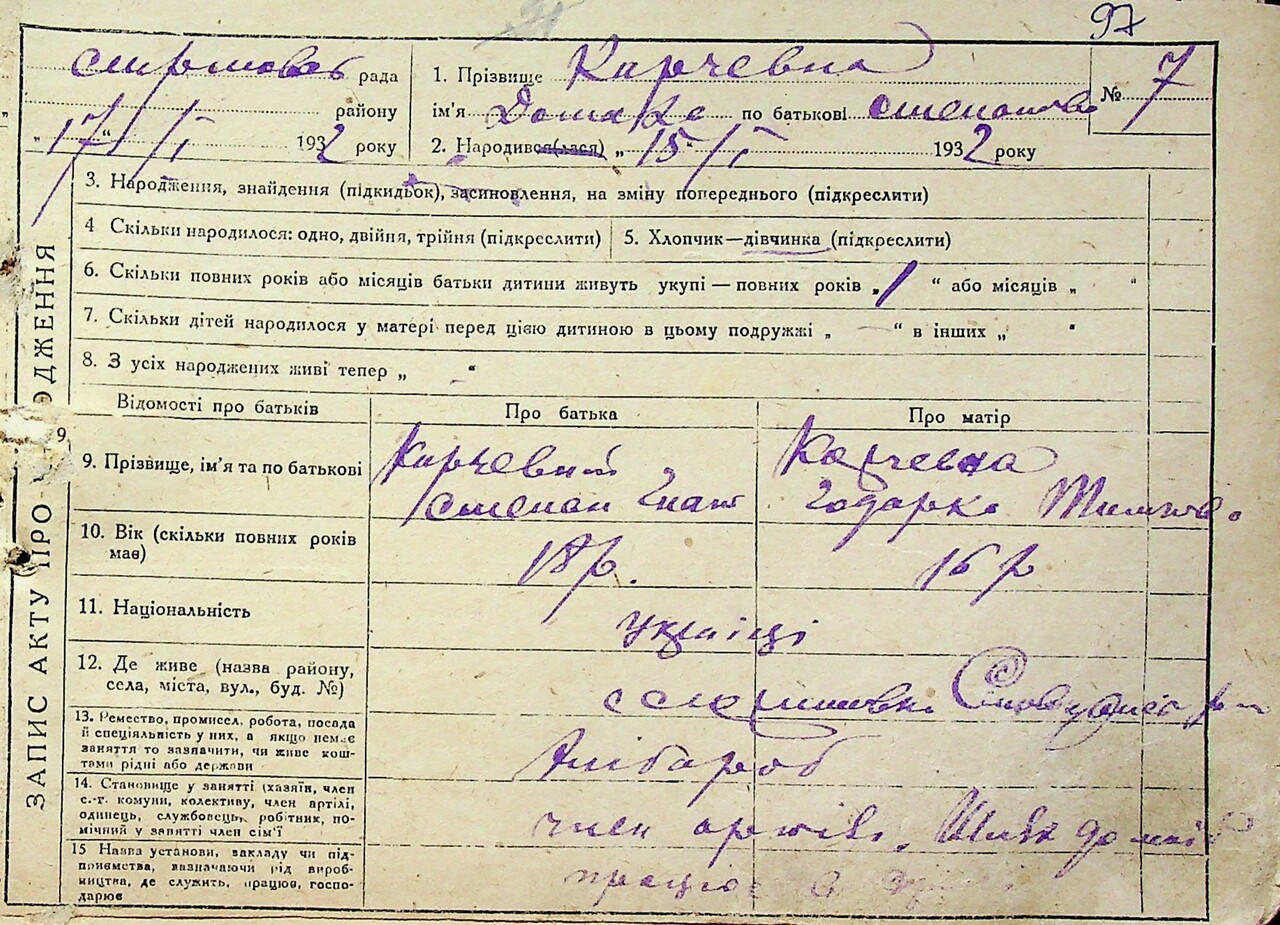 97
рада
району
"17" / I 1932 року
1. Прізвище Карчевна
№ 7
ім'я по батькові
2. Народився(лася) „15" / I 1932 року
3. Народження, знайдення (підкидьок), засиновлення, на зміну попереднього (підкреслити)
4 Скільки народилося: одно, двійня, трійня (підкреслити)
5. Хлопчик—дівчинка (підкреслити)
6. Скільки повних років або місяців батьки дитини живуть укупі — повних років „1" або місяців „ "
7. Скільки дітей народилося у матері перед цією дитиною в цьому подружжі „ — " в інших „ "
8. З усіх народжених живі тепер „ - "
ЗАПИС АКТУ ПРО ОДЖЕННЯ
Відомості про батьків
Про батька
Про матір
9
9. Прізвище, ім'я та по батькові
Карчевний
степан Гнат
Карчевна
Тодарка
10. Вік (скільки повних років
має)
18 р.
16 р
11. Національність
українці
12. Де живе (назва району,
села, міста, вул., буд. №)
с
13. Ремество, промисел, робота, посада
й спеціяльність у них, а якщо немає
заняття то зазначити, чи живе кош-
тами рідні або держави
Хлібороб
14. Становище у занятті (хазяїн, член
с.-г. комуни, колективу, член артілі,
одинець, службовець, робітник, по-
мічний у занятті член сім'ї
член артілі.
15 Назва установи, закладу чи під-
приємства, зазначаючи рід вироб-
ництва, де служить, працює, госпо-
дарює
працює в